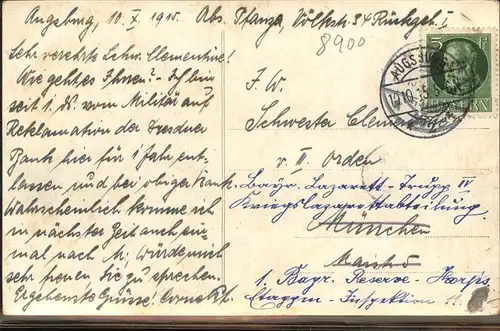 Augsburg, 10. X. 1915. Abs. Pfanza, Völkstr. 34 Rückgeb. I
8900
Sehr verehrte Schw. Clementine!
Wie geht es Ihnen? - Ich bin
seit 1. X. vom Militär auf
Reklamation der Dresdner
Bank hier für 1 Jahr ent-
lassen und bei obiger Bank.
Wahrscheinlich komme ich
in nächster Zeit auch ein-
mal nach M. Würde mich
sehr freuen Sie zu sprechen.
Ergebenste Grüsse!
AUGSBURG
10.10.15
5 PF
BAYERN
I. W.
Schwester Clementine
v. III. Orden
Bayr. Lazarett-Trupp IV
Kriegslazarettabteilung
München
1. Bayr. Reserve-Korps
Etappen-Inspektion